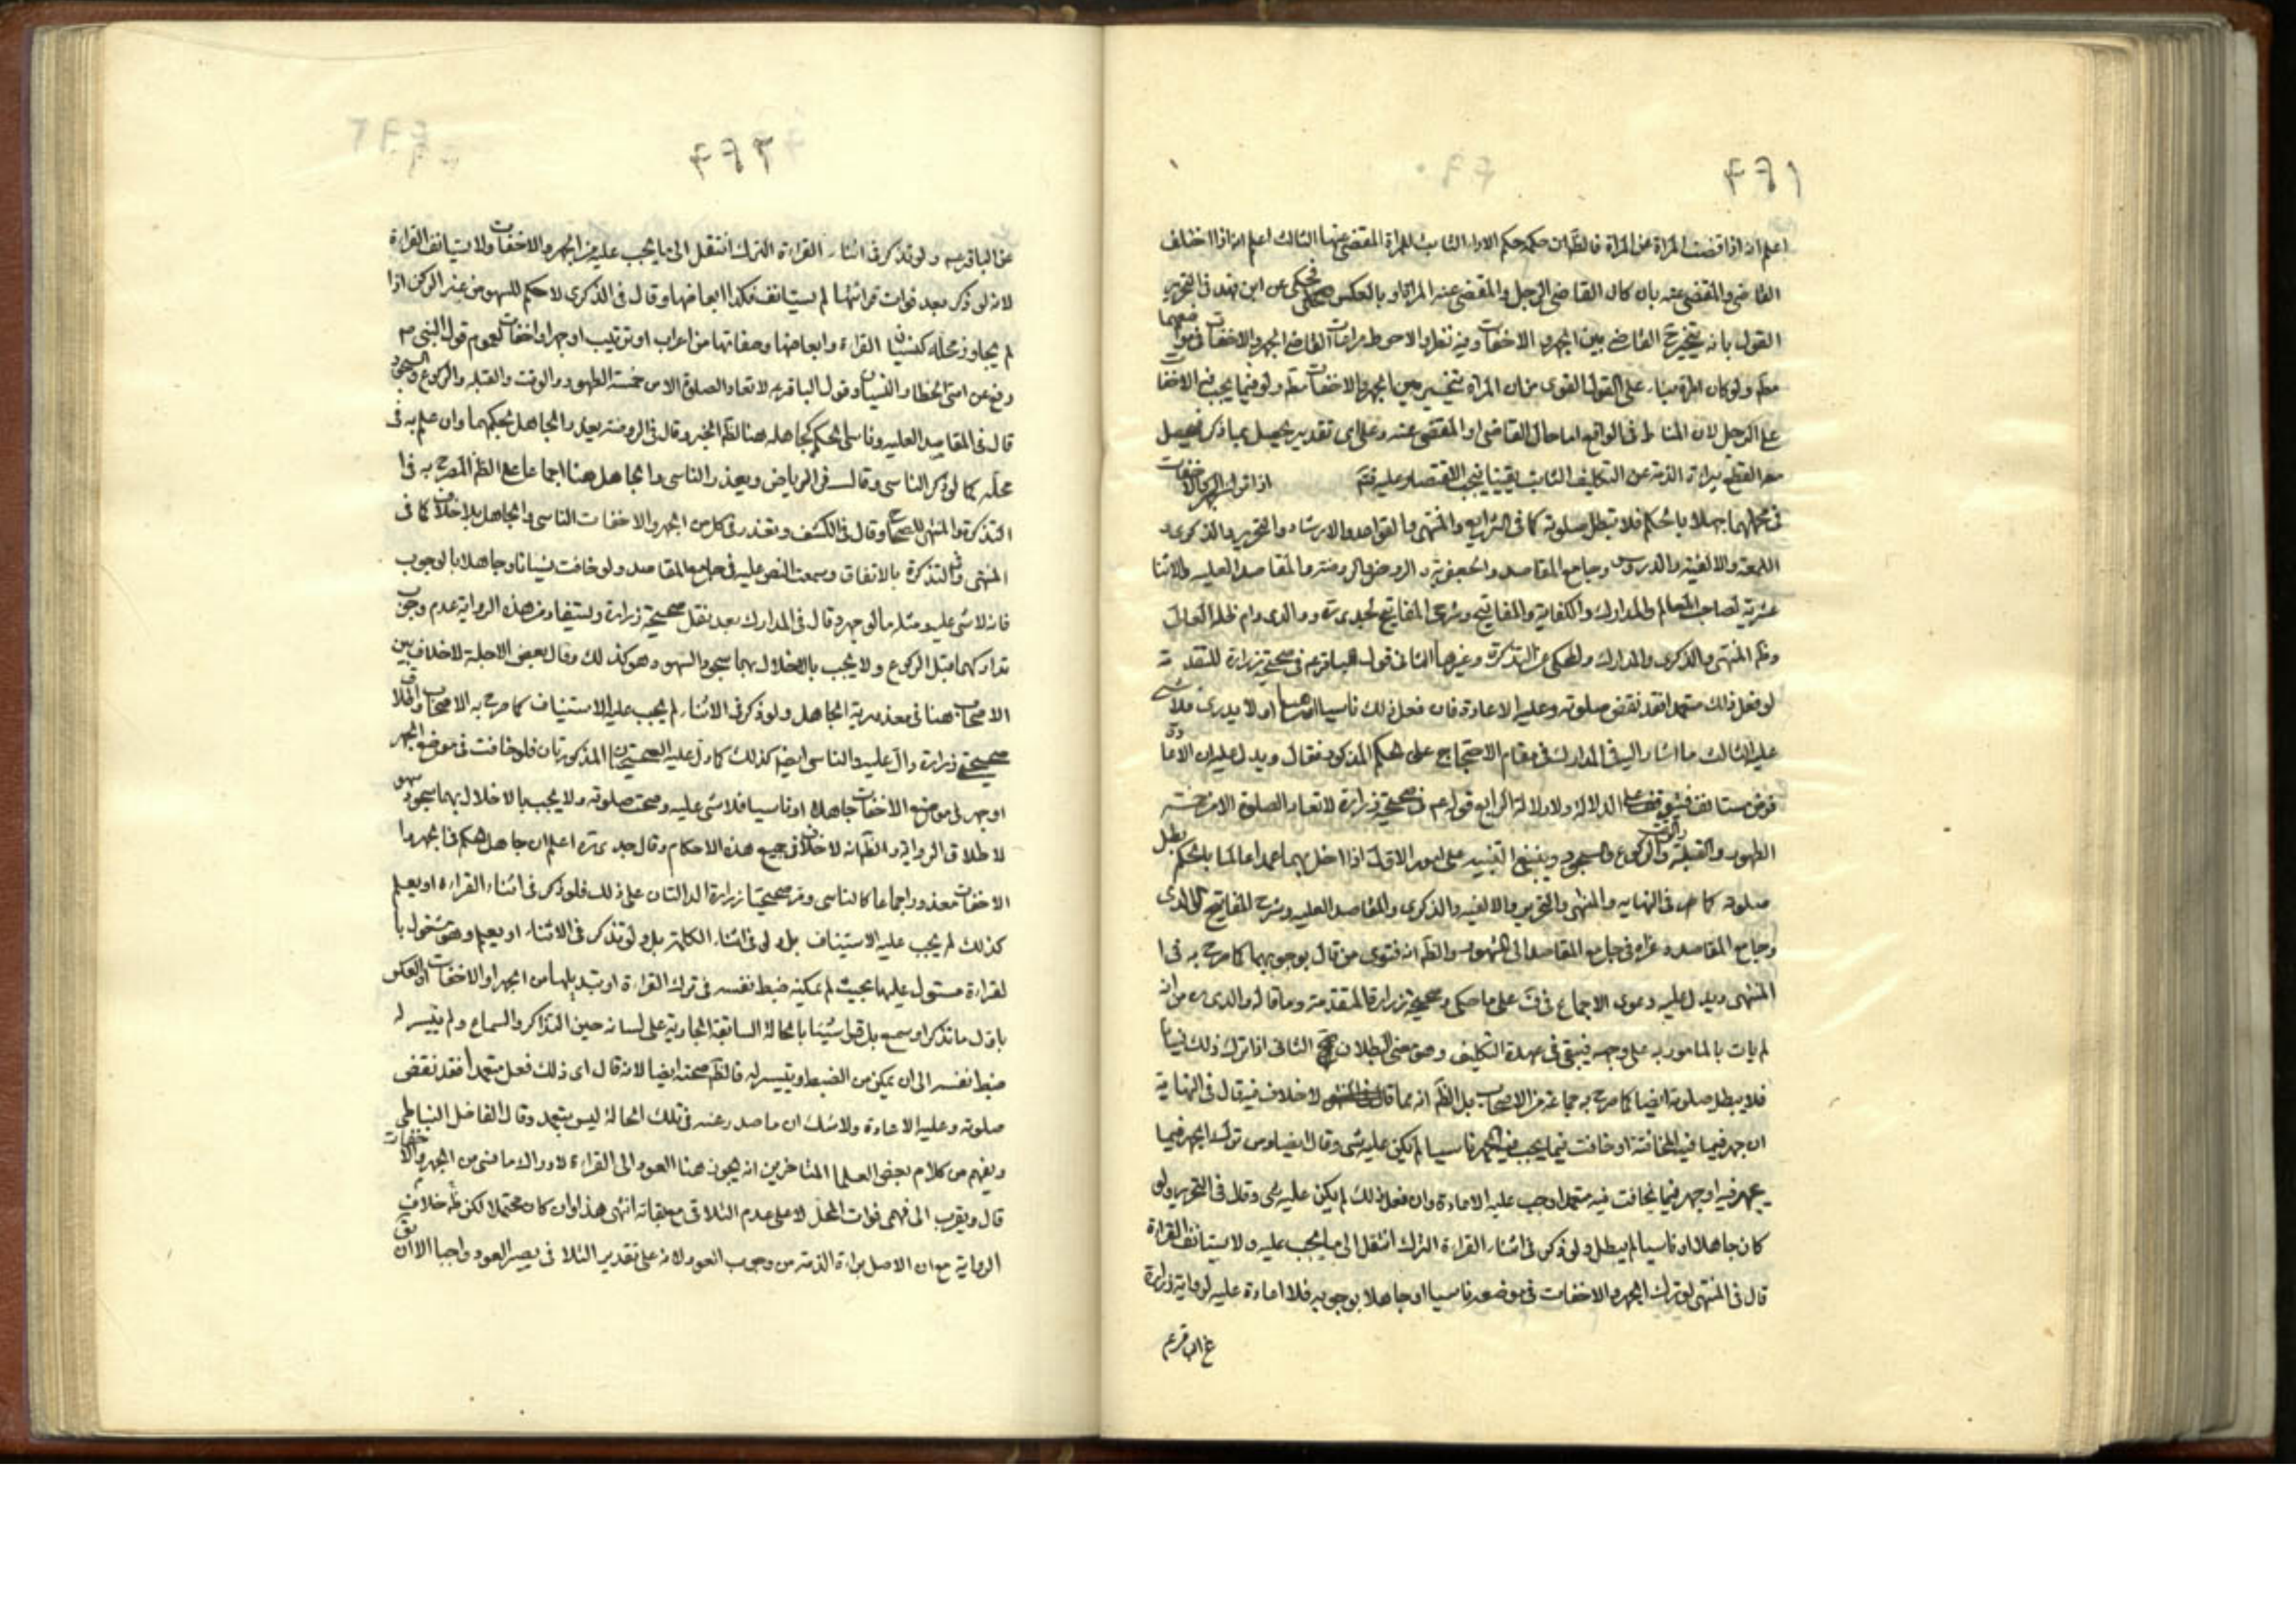 ٤٩١
اعلم انه اذا قضت المراة عن المراة فالظاهر ان حكمه حكم الاداء الثابت للمراة المقضى عنها الثالث اعلم انه اذا اختلف
القاضى والمقضى عنه بان كان القاضى الرجل والمقضى عنه المراة او بالعكس فحكى عن ابن فهد فى التحرير
القول بانه يتخير القاضى بين الجهر والاخفات وفيه نظر والاحوط مراعات القاضى الجهر والاخفات فى مواضعهما
مط ولو كان امراة بناء على القول القوى من ان المراة تتخير بين الجهر والاخفات مط ولو فيما يجب فيه الاخفا
على الرجل لان المناط فى الواقع اما حال القاضى او المقضى عنه وعلى اى تقدير يحصل بما ذكر تحصيل
معه القطع ببراءة الذمة عن التكليف الثابت يقينا فيجب الاقتصار عليه فتم اذا ترك الجهر والاخفات
فى محلهما جهلا بالحكم فلا تبطل صلوته كما فى الشرايع والمنتهى والقواعد والارشاد والتحرير والذكرى و
اللمعة والالفية والدروس وجامع المقاصد والجعفرية والروض والروضة والمقاصد العلية والاثنا
عشرية لصاحب المعالم والمدارك والكفاية والمفاتيح وشرح المفاتيح لجدى ره ووالدى دام ظله العالى
وظ المنتهى والذكرى والمدارك والمحكى عن التذكرة وغيرها الثانى قول الباقر ع فى صحيحة زرارة المتقدمة
لو فعل ذلك متعمدا فقد نقض صلوته وعليه الاعادة فان فعل ذلك ناسيا او ساهيا او لا يدرى فلا شى
عليه الثالث ما اشار اليه فى المدارك فى مقام الاحتجاج على الحكم المذكور فقال ويدل عليه ان الاعادة
فرض مستانف فيتوقف على الدلالة ولا دلالة الرابع قوله ع فى صحيحة زرارة لا تعاد الصلوة الا من خمسة
الطهور والقبلة والوقت والركوع والسجود وينبغى التنبيه على امور الاول اذا اخل بهما عمدا عالما بالحكم بطل
صلوته كما فى النهاية والمنتهى والتحرير والالفية والذكرى والمقاصد العلية وشرح المفاتيح لوالدى
وجامع المقاصد وعزاه فى جامع المقاصد الى المشهور والظ انه فتوى من قال بوجوبهما كما صرح به فى ا
المنتهى ويدل عليه دعوى الاجماع فى ف على ما حكى وصحيحة زرارة المتقدمة وما قاله والدى ره من انه
لم يات بالمامور به على وجهه فيبقى فى عهدة التكليف وهو معنى البطلان الثانى اذا ترك ذلك نسيانا
فلا يبطل صلوته ايضا كما صرح به جماعة من الاصحاب بل الظ انه مما لا خلاف فيه قال فى النهاية
ان جهر فيما فيه المخافتة او خافت فيما يجب فيه الجهر ناسيا لم يكن عليه شى وقال ايضا ومن ترك الجهر فيما
يجهر فيه او جهر فيما يخافت فيه متعمدا وجب عليه الاعادة وان فعل ذلك لم يكن عليه شى وقال فى التحرير ولو
كان جاهلا او ناسيا لم يبطل ولو ذكر فى اثناء القراءة الترك انتقل الى ما يجب عليه ولا يستانف القراءة
قال فى المنتهى لو ترك الجهر والاخفات فى موضعه ناسيا او جاهلا بوجوبه فلا اعادة عليه لرواية زرارة
عن الباقر ع
٤٩٢
عن الباقر ع ولو تذكر فى اثناء القراءة الترك انتقل الى ما يجب عليه من الجهر والاخفات ولا يستانف القراءة
لانه لو ذكر بعد فوات قرائتها لم يستانف فكذا ابعاضها وقال فى الذكرى لا حكم للسهو من غير الركن اذا
لم يجاوز محله كنسيان القراءة وابعاضها وصفاتها من اعراب او ترتيب او جهر او اخفات لعموم قول النبى ص
رفع عن امتى الخطا والنسيان وقول الباقر ع لا تعاد الصلوة الا من خمسة الطهور والوقت والقبلة والركوع والسجود
قال فى المقاصد العلية وناسى الحكم كجاهله هنا لظ الخبر وقال فى الروضة يعذر الجاهل بحكمهما وان علم به فى
محله كما لو ذكر الناسى وقال فى الرياض ويعذر الناسى والجاهل هنا اجماعا على الظ المصرح به فى ا
التذكرة والمنتهى للصحاح وقال فى الكشف ويعذر فى كل من الجهر والاخفات الناسى والجاهل بلا خلاف كما فى
المنتهى وفى التذكرة بالاتفاق وسمعت النص عليه فى جامع المقاصد ولو خافت نسيانا وجاهلا بالوجوب
فانه لا شى عليه ومثله ما لو جهر وقال فى المدارك بعد نقل صحيحة زرارة ويستفاد من هذه الرواية عدم وجوب
تداركهما قبل الركوع ولا يجب بالاخلال بهما سجود السهو وهو كذلك وقال بعض الاجلة لا خلاف بين
الاصحاب هنا فى معذورية الجاهل ولو ذكر فى الاثناء لم يجب عليه الاستيناف كما صرح به الاصحاب واطلاق
صحيحتى زرارة دال عليه والناسى ايضا كذلك كما دل عليه الصحيحتان المذكورتان فلو خافت فى موضع الجهر
او جهر فى موضع الاخفات جاهلا او ناسيا فلا شى عليه وصحت صلوته ولا يجب بالاخلال بهما سجود سهو
لاطلاق الرواية والظ انه لا خلاف فى جميع هذه الاحكام وقال جدى ره اعلم ان جاهل الحكم فى الجهر وا
الاخفات معذور اجماعا كالناسى ومر صحيحتا زرارة الدالتان على ذلك فلو ذكر فى اثناء القراءة او يعلم
كذلك لم يجب عليه الاستيناف بل ولو فى اثناء الكلمة بل ولو تذكر فى الاثناء او يعلم وهو مشغول با
لقراءة مستول عليها بحيث لم يمكنه ضبط نفسه فى ترك القراءة او تبديلها من الجهر او الاخفات او العكس
باول ما تذكر او سمع بل قرا شيئا بالحالة السابقة الجارية على لسانه حين التذاكر والسماع ولم يتيسر له
ضبط نفسه الى ان يمكن من الضبط ويتيسر له فالظ صحته ايضا لانه قال اى ذلك فعل متعمدا فقد نقض
صلوته وعليه الاعادة ولا شك ان ما صدر عنه فى تلك الحالة ليس بتعمد وقال الفاضل النباطى
ويفهم من كلام بعض العلما المتاخرين انه يجوز هنا العود الى القراءة لادراك ما نسى من الجهر والاخفات
قال ويقرب الى فهمى فوات المحل لا على عدم التلافى مع بقائه انتهى هذا وان كان محتملا لكن ظ خلاف
الرواية مع ان الاصل براءة الذمة من وجوب العود لانه على تقدير التلافى يصير العود واجبا الا ان يق